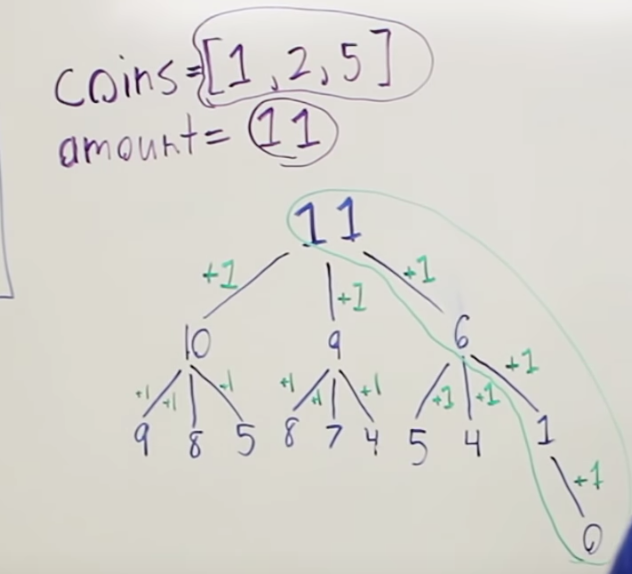 coins=[1,2,5]
amount=11
11
+1 +1 +1
10 9 6
+1 +1 +1 +1 +1 +1 +1 +1 +1
9 8 5 8 7 4 5 4 1
+1
0